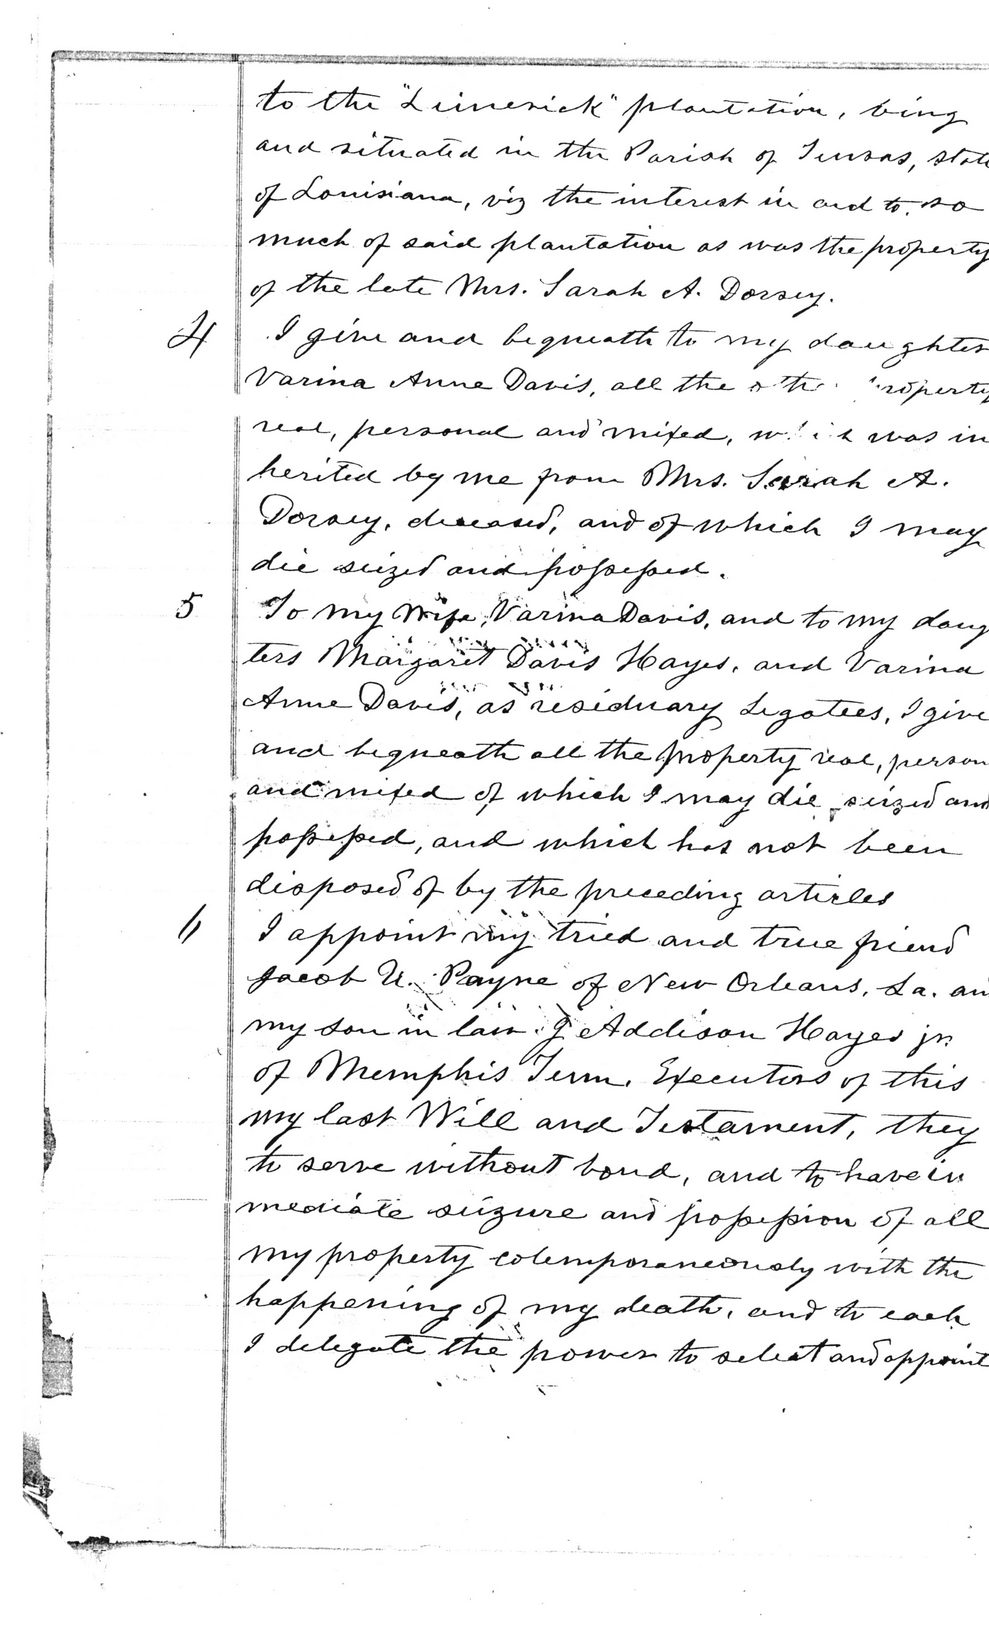 to the "Limerick" plantation, being
and situated in the Parish of Tensas, state
of Louisiana, viz the interest in and to, so
much of said plantation as was the property
of the late Mrs. Sarah A. Dorsey.
4 I give and bequeath to my daughter
Varina Anne Davis, all the other property
real, personal and mixed, which was in
herited by me from Mrs. Sarah A.
Dorsey, deceased, and of which I may
die seized and possessed.
5 To my Wife, Varina Davis, and to my daug
ters Margaret Davis Hayes, and Varina
Anne Davis, as residuary Legatees, I give
and bequeath all the property real, person
and mixed of which I may die seized and
possessed, and which has not been
disposed of by the preceding articles
6 I appoint my tried and true friend
Jacob U. Payne of New Orleans, La. an
my son in law J Addison Hayes jr.
of Memphis Tenn. Executors of this
my last Will and Testament, they
to serve without bond, and to have im
mediate seizure and possession of all
my property cotemporaneously with the
happening of my death, and to each
I delegate the power to select and appoint